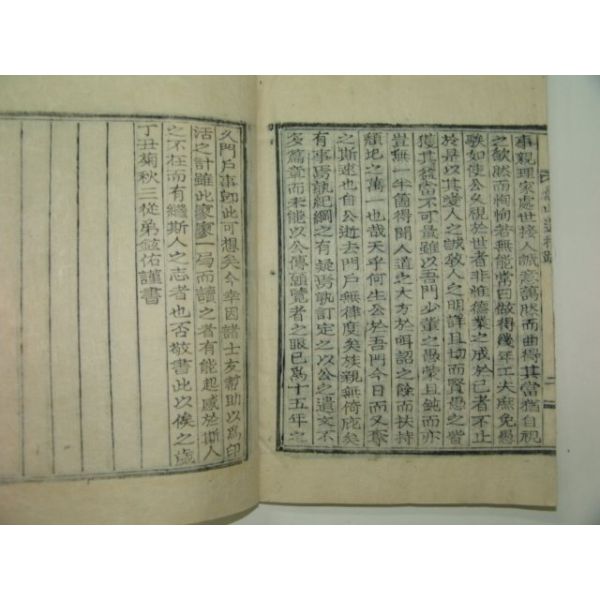 事親理家處世接人誠意藹然而曲得其當猶自視
之歉然而恂恂若無能嘗曰做得幾年工夫庶免愚
騃如使公久視於世者非惟德業之成於己者不止
於是以其愛人之誠敎人之明詳且切而賢愚之皆
獲其發當不可量雖以吾門少輩之愚蒙且鈍而亦
豈無一半箇得聞人道之大方於明詔之餘而扶持
頹圮之萬一也哉天乎何生公於吾門今日而又奪
之斯速也自公逝去門戶無律度矣族親無倚庇矣
有事焉孰紀綱之有疑焉孰訂定之以公之遺文不
多篇章而未能以公傳願覽者之眼已爲十五年之
久門戶事卽此可想矣今幸因諸士友幫助以爲印
活之計雖此寥寥一局而讀之者有能起感於斯人
之不在而有繼斯人之志者也否敬書此以俟之歲
丁丑菊秋三從弟鉉佑謹書